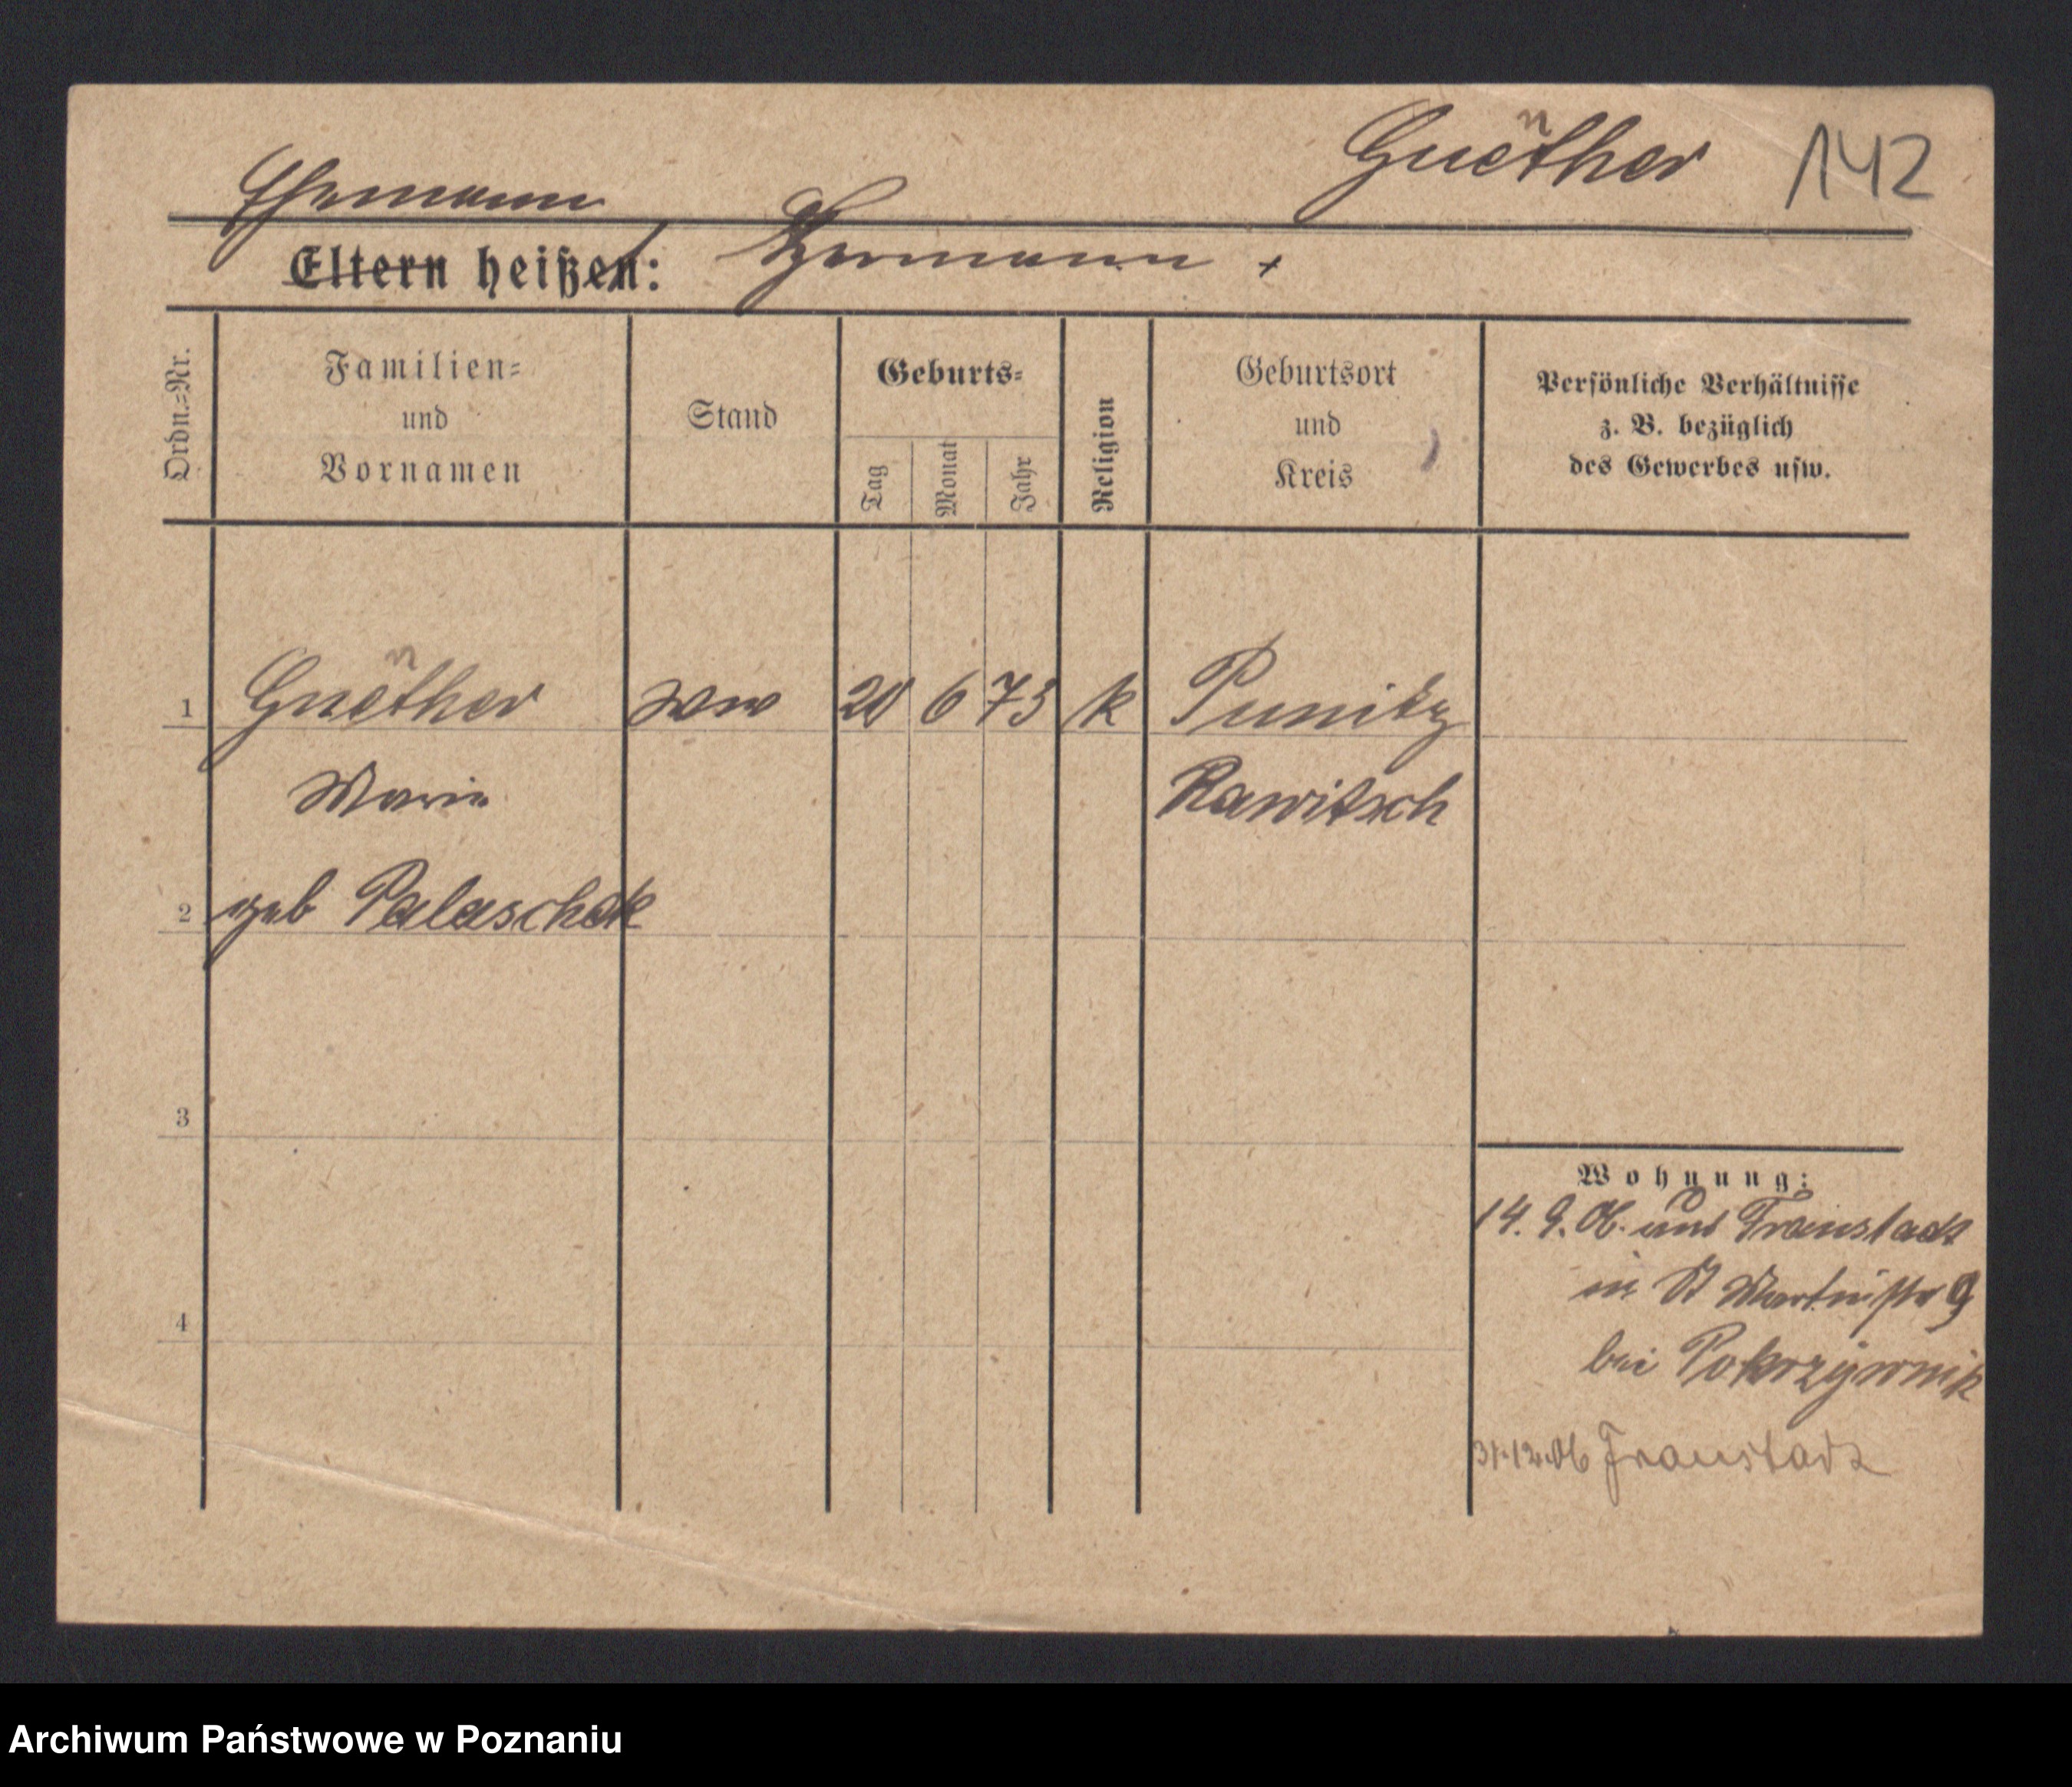 Guether 142
Ehemann
Eltern heißen: Hermann +
Ordn.=Nr.
Familien=
und
Vornamen
Stand
Geburts=
Tag
Monat
Jahr
Religion
Geburtsort
und
Kreis
Persönliche Verhältnisse
z. B. bezüglich
des Gewerbes usw.
1 Guether ww 20 6 73 k Punitz
Marie Rawitsch
2 geb Palaschek
3
4
Wohnung:
14. 9. 06. aus Fraustadt
in St Martinstr 9
bei Pokrzywnik
31.12.06 Fraustadt
Archiwum Państwowe w Poznaniu